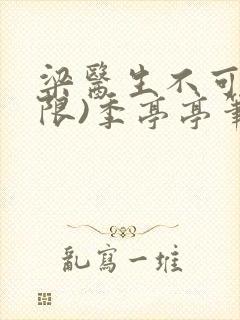 梁醫生不可
限)季亭亭筆
亂寫一堆